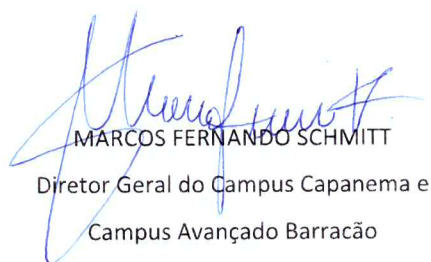 MARCOS FERNANDO SCHMITT
Diretor Geral do Campus Capanema e
Campus Avançado Barracão